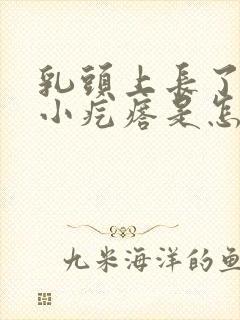 乳頭上長了
小疙瘩是怎
九米海洋的魚